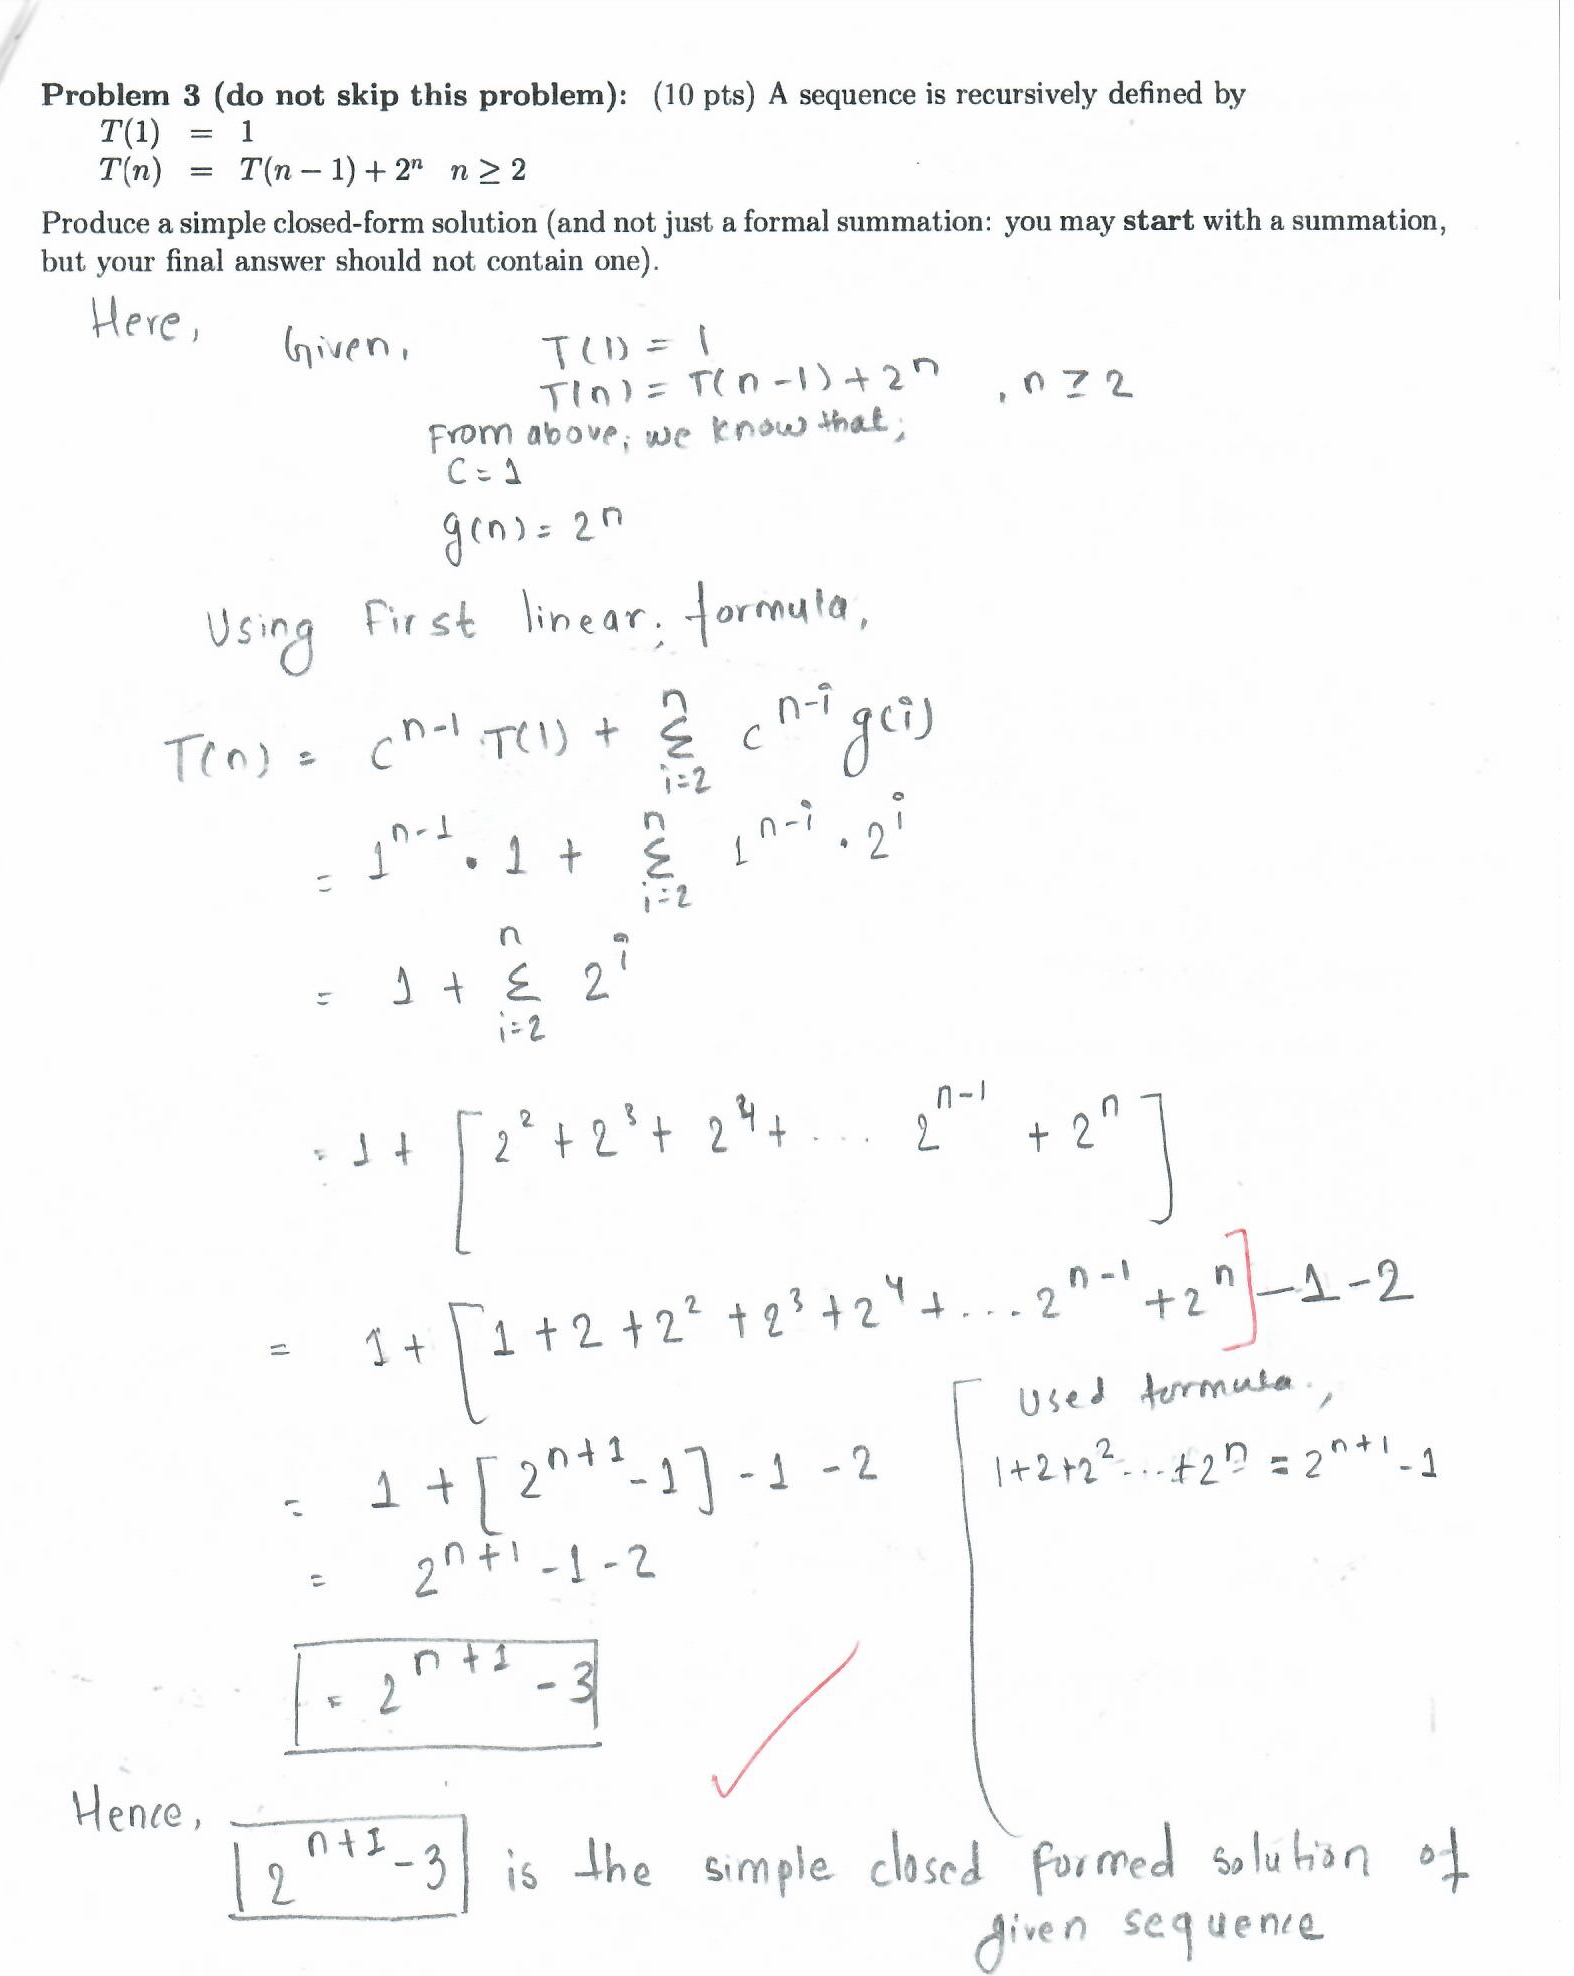 Problem 3 (do not skip this problem): (10 pts) A sequence is recursively defined by
T(1) = 1
T(n) = T(n − 1) + 2ⁿ n ≥ 2
Produce a simple closed-form solution (and not just a formal summation: you may start with a summation,
but your final answer should not contain one).
Here,
Given, T(1) = 1
T(n) = T(n-1) + 2ⁿ , n ≥ 2
From above, we know that,
C = 1
g(n) = 2ⁿ
Using First linear, formula,
T(n) = cⁿ⁻¹ T(1) + Σ_{i=2}^{n} c^{n-i} g(i)
= 1ⁿ⁻¹ . 1 + Σ_{i=2}^{n} 1^{n-i} . 2^i
= 1 + Σ_{i=2}^{n} 2^i
= 1 + [ 2² + 2³ + 2⁴ + .... 2ⁿ⁻¹ + 2ⁿ ]
= 1 + [ 1 + 2 + 2² + 2³ + 2⁴ + ... 2ⁿ⁻¹ + 2ⁿ ] - 1 - 2
= 1 + [ 2ⁿ⁺¹ - 1 ] - 1 - 2
Used formula,
1+2+2²....+2ⁿ = 2ⁿ⁺¹ - 1
= 2ⁿ⁺¹ - 1 - 2
= 2ⁿ⁺¹ - 3
Hence, 2ⁿ⁺¹ - 3 is the simple closed formed solution of
given sequence